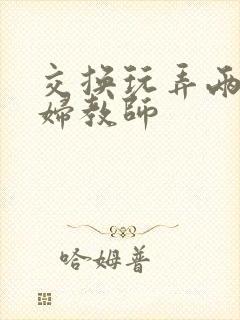 交换玩弄两
婦教師
哈姆普